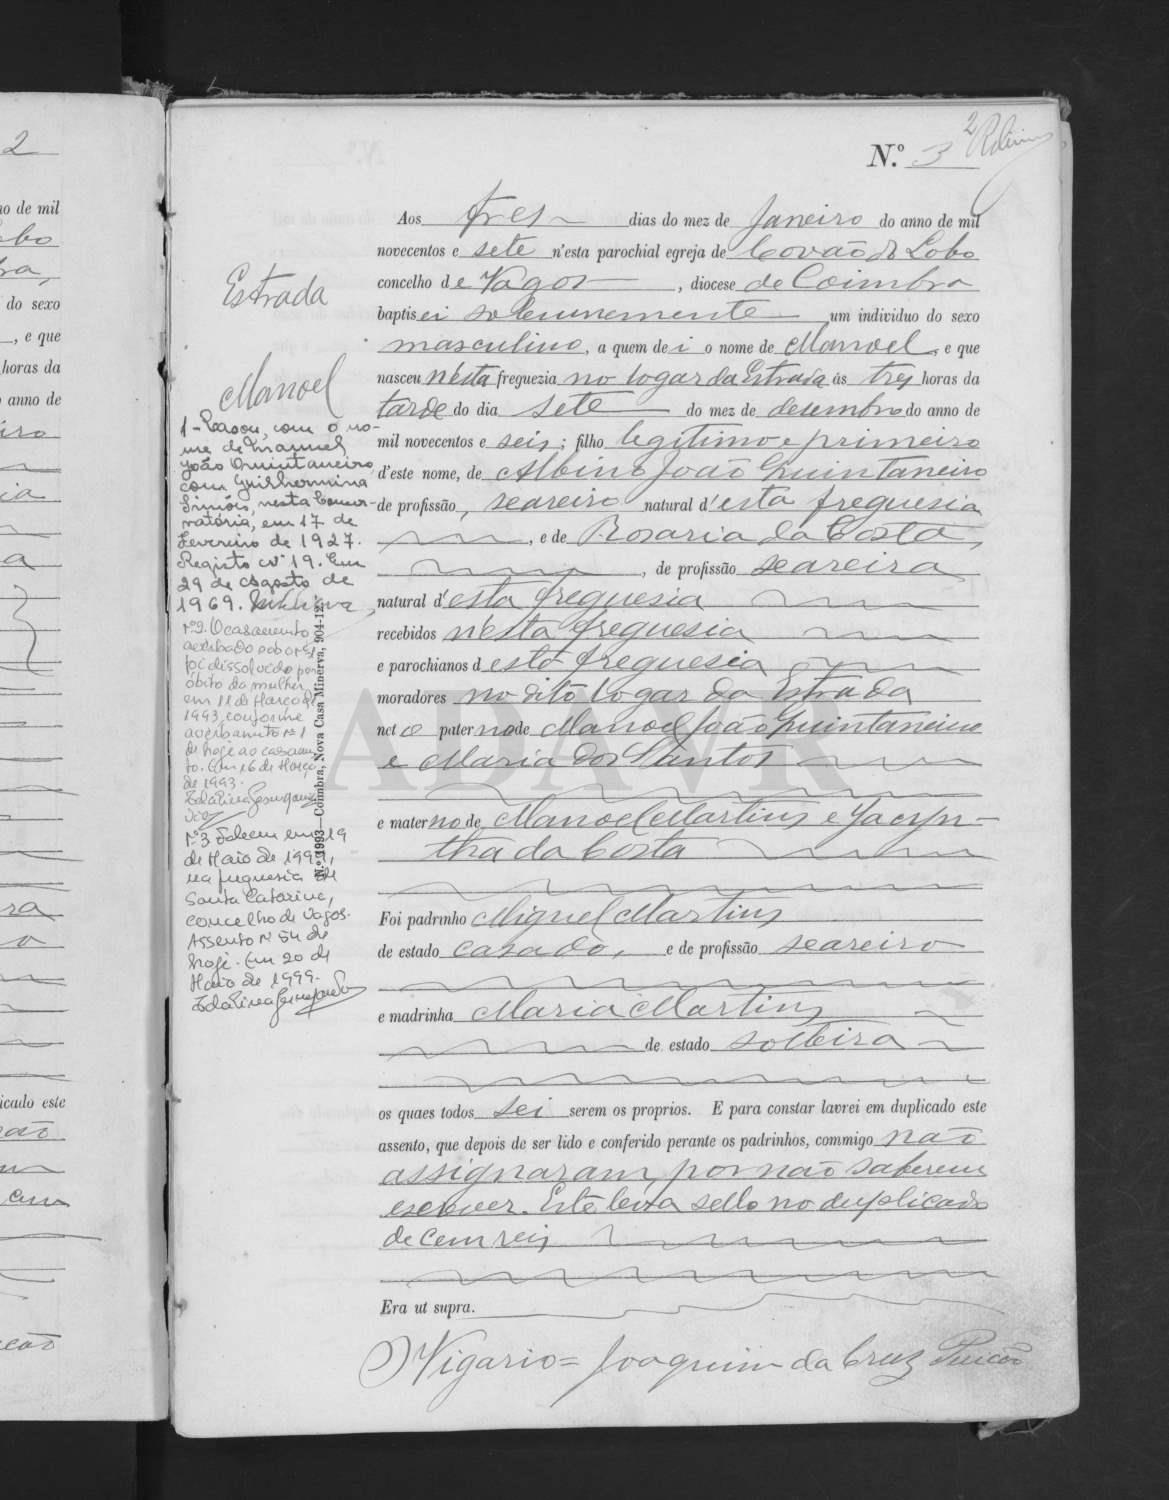 2
Nº 3
Aos tres dias do mez de Janeiro do anno de mil
novecentos e sete n'esta parochial egreja de Covão do Lobo
concelho de Vagos, diocese de Coimbra
baptisei solemnemente um individuo do sexo
masculino, a quem dei o nome de Manoel, e que
nasceu nesta freguezia no logar da Estrada ás tres horas da
tarde do dia sete do mez de desembro do anno de
mil novecentos e seis; filho legitimo e primeiro
d'este nome, de Albino João Quintaneiro
de profissão, seareiro natural d'esta freguesia
, e de Rosaria da Costa,
, de profissão seareira
natural d'esta freguesia
recebidos n'esta freguesia
e parochianos desta freguesia
moradores no dito logar da Estrada
neto paterno de Manoel João Quintaneiro
e Maria dos Santos
e materno de Manoel Martins e Jacyn-
tha da Costa
Foi padrinho Miguel Martins
de estado casado, e de profissão seareiro
e madrinha Maria Martins
de estado solteira
os quaes todos sei serem os proprios. E para constar lavrei em duplicado este
assento, que depois de ser lido e conferido perante os padrinhos, commigo não
assignaram, por não saberem
escrever. Este leva sello no duplicado
de cem reis
Era ut supra.
O Vigario = Joaquim da Cruz
Estrada
Manoel
1 - Casou, com o no-
me de Manuel
João Quintaneiro,
com Guilhermina
Simões, nesta Conser-
vatória, em 17 de
Fevereiro de 1927.
Registo nº 19. Em
29 de Agosto de
1969.
Nº2. O casamento
averbado sob o nº 1
foi dissolvido por
óbito da mulher
em 11 de Março de
1993, conforme
averbamento nº 1
de hoje ao casamen
to. Em 16 de Março
de 1993.
Nº 3 Faleceu em 19
de Maio de 1999,
na freguesia de
Santa Catarina,
concelho de Vagos.
Assento Nº 54 de
hoje. Em 20 de
Maio de 1999.
Nº 1993—Coimbra, Nova Casa Minerva, 904-12
ADAVR
2
no de mil
do sexo
, e que
horas da
anno de
icado este